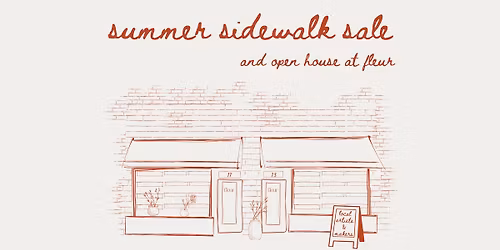 summer sidewalk sale
and open house at fleur
fleur
fleur
local
artists
&
makers